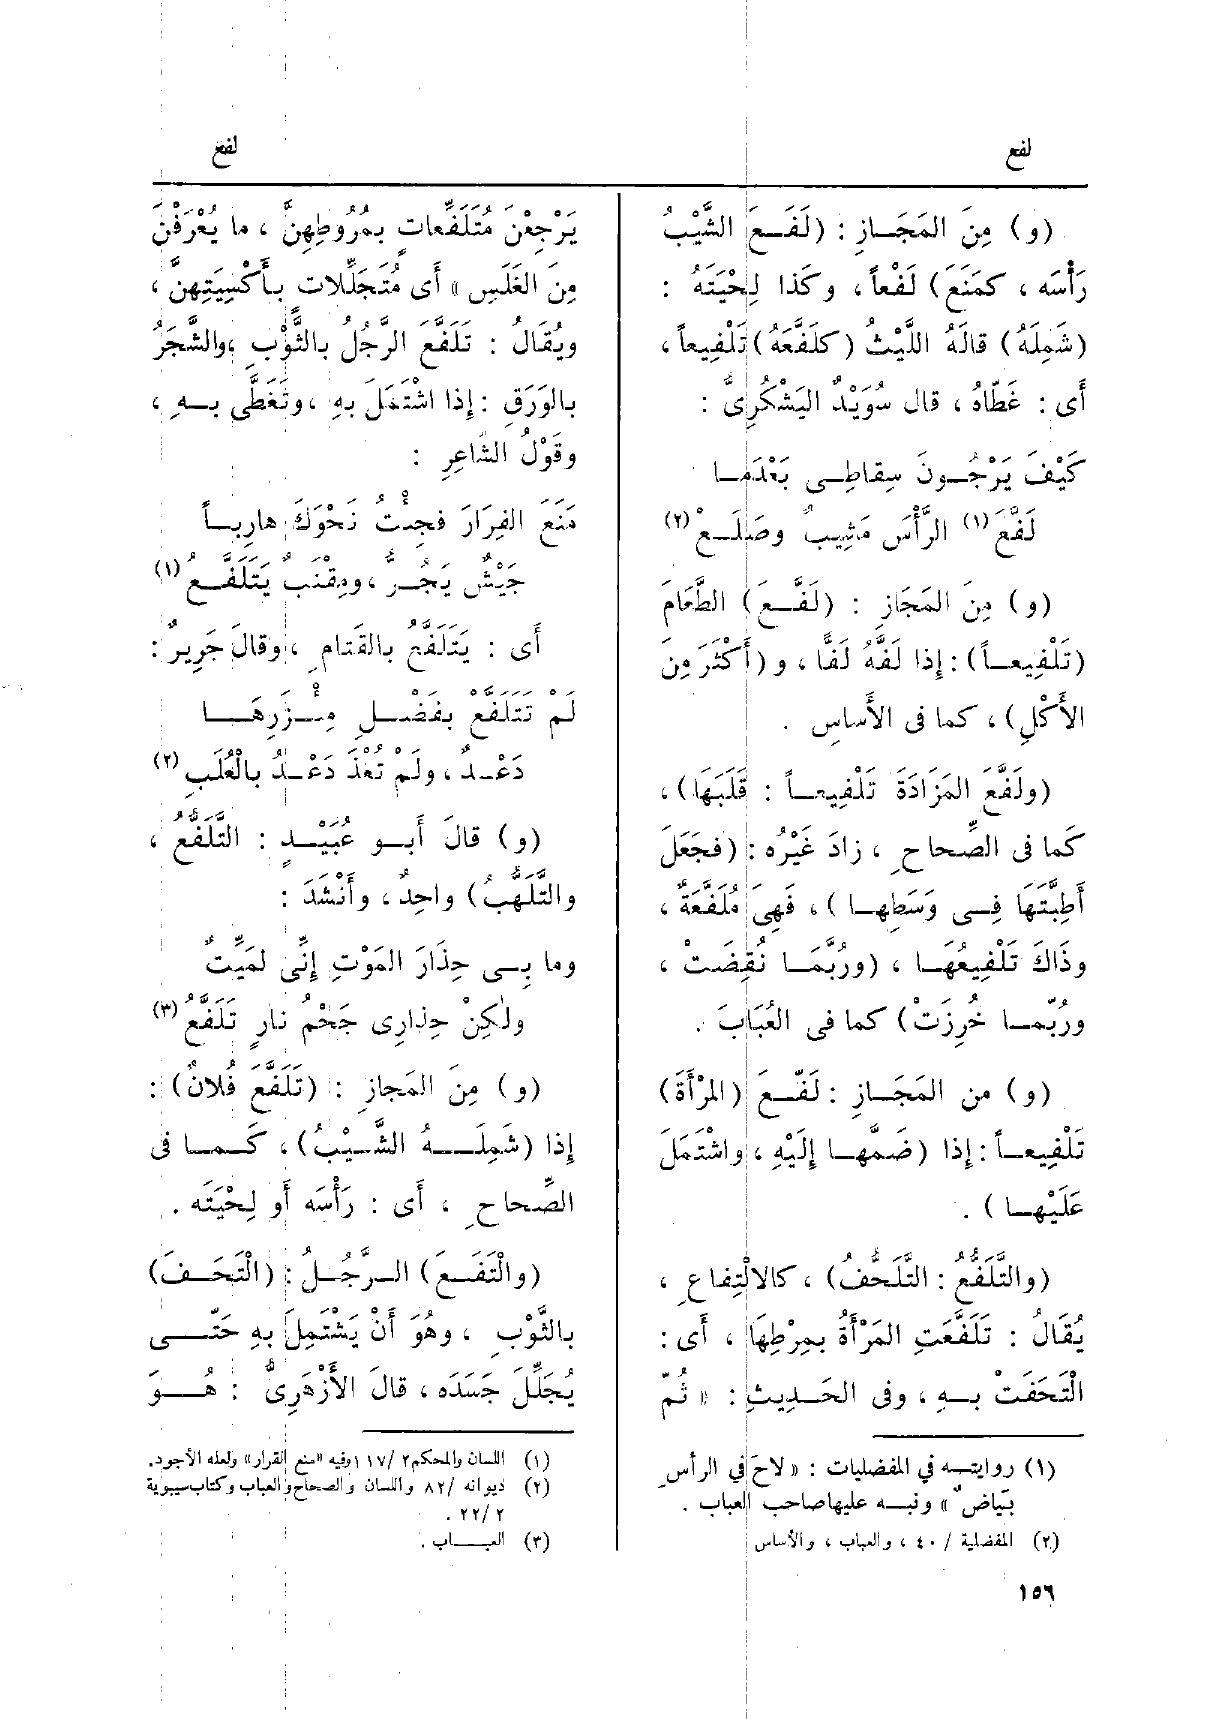 لفع
لفع
(و) مِنَ المَجَازِ : (لَفَعَ الشَّيْبُ
رَأْسَه ، كمَنَعَ) لَفْعاً ، وكَذا لِحْيَتَهُ :
(شَمِلَهُ) قالَهُ اللَّيْثُ (كلَفَّعَهُ) تَلْفِيعاً ،
أى : غَطّاهُ ، قال سُوَيْدٌ اليَشْكُرِىُّ :
كَيْفَ يَرْجُونَ سِقاطِى بَعْدَما
لَفَّعَ (١) الرَّأْسَ مَشِيبٌ وصَلَعْ (٢)
(و) مِنَ المَجَازِ : (لَفَّعَ) الطَّعَامَ
(تَلْفِيعاً) : إذا لَفَّهُ لَفًّا ، و (أَكْثَرَ مِنَ
الأَكْلِ) ، كما فى الأَساسِ .
(ولَفَّعَ المَزَادَةَ تَلْفِيعاً : قَلَبَهَا) ،
كَما فى الصِّحاحِ ، زادَ غَيْرُه : (فجَعَلَ
أَطِبَّتَهَا فِى وَسَطِها) ، فَهِىَ مُلَفَّعَةٌ ،
وذَاكَ تَلْفِيعُهَا ، (ورُبَّمَا نُقِضَتْ ،
ورُبَّما خُرِزَتْ) كما فى العُبَابَ .
(و) من المَجَازِ : لَفَّعَ (المَرْأَةَ)
تَلْفِيعاً : إذا (ضَمَّها إِلَيْهِ ، واشْتَمَلَ
عَلَيْها) .
(والتَّلَفُّعُ : التَّلَحُّفُ) ، كالالْتِفاعِ ،
يُقَالُ : تَلَفَّعَتِ المَرْأَةُ بِمِرْطِهَا ، أى :
الْتَحَفَتْ بِهِ ، وفى الحَدِيثِ : « ثُمّ
(١) روايته في المفضليات : « لاحَ في الرأسِ
بَيَاضٌ » ونبه عليها صاحب العباب .
(٢) المفضلية / ٤٠ ، والعباب ، والأساس
يَرْجِعْنَ مُتَلَفِّعاتٍ بِمُرُوطِهِنَّ ، ما يُعْرَفْنَ
مِنَ الغَلَسِ » أى مُتَجَلِّلاتٍ بأَكْسِيَتِهِنَّ ،
ويُقَالُ : تَلَفَّعَ الرَّجُلُ بالثَّوْبِ ، والشَّجَرُ
بالوَرَقِ : إذا اشْتَمَلَ بِهِ ، وتَغَطَّى بِهِ ،
وقَوْلُ الشّاعِرِ :
مَنَعَ الفِرَارَ فجِئْتُ نَحْوَكَ هارِباً
جَيْشٌ يَجُرُّ ، ومِقْنَبٌ يَتَلَفَّعُ (١)
أى : يَتَلَفَّعُ بالقَتامِ ، وقالَ جَرِيرٌ :
لَمْ تَتَلَفَّعْ بفَضْلِ مِئْزَرِهَا
دَعْدٌ ، ولَمْ تُغْذَ دَعْدُ بالْعُلَبِ (٢)
(و) قالَ أَبو عُبَيْدٍ : التَّلَفُّعُ ،
والتَّلَهُّبُ) واحِدٌ ، وأَنْشَدَ :
وما بِى حِذَارَ المَوْتِ إِنِّى لمَيِّتٌ
ولٰكِنْ حِذارِى جَحْمُ نارٍ تَلَفَّعُ (٣)
(و) مِنَ المَجازِ : (تَلَفَّعَ فُلانٌ) :
إذا (شَمِلَهُ الشَّيْبُ) ، كَما فى
الصِّحاحِ ، أى : رَأْسَه أَو لِحْيَتَه .
(والْتَفَعَ) الرَّجُلُ : (الْتَحَفَ)
بالثَّوْبِ ، وهُوَ أَنْ يَشْتَمِلَ بهِ حَتّى
يُجَلِّلَ جَسَدَه ، قالَ الأَزْهَرِىُّ : هُوَ
(١) اللسان والمحكم ٢ /١١٧ وفيه «منع القرار» ولعله الأجود.
(٢) ديوانه /٨٢ واللسان والصحاح والعباب وكتاب سيبوية
٢ /٢٢ .
(٣) العباب .
١٥٦